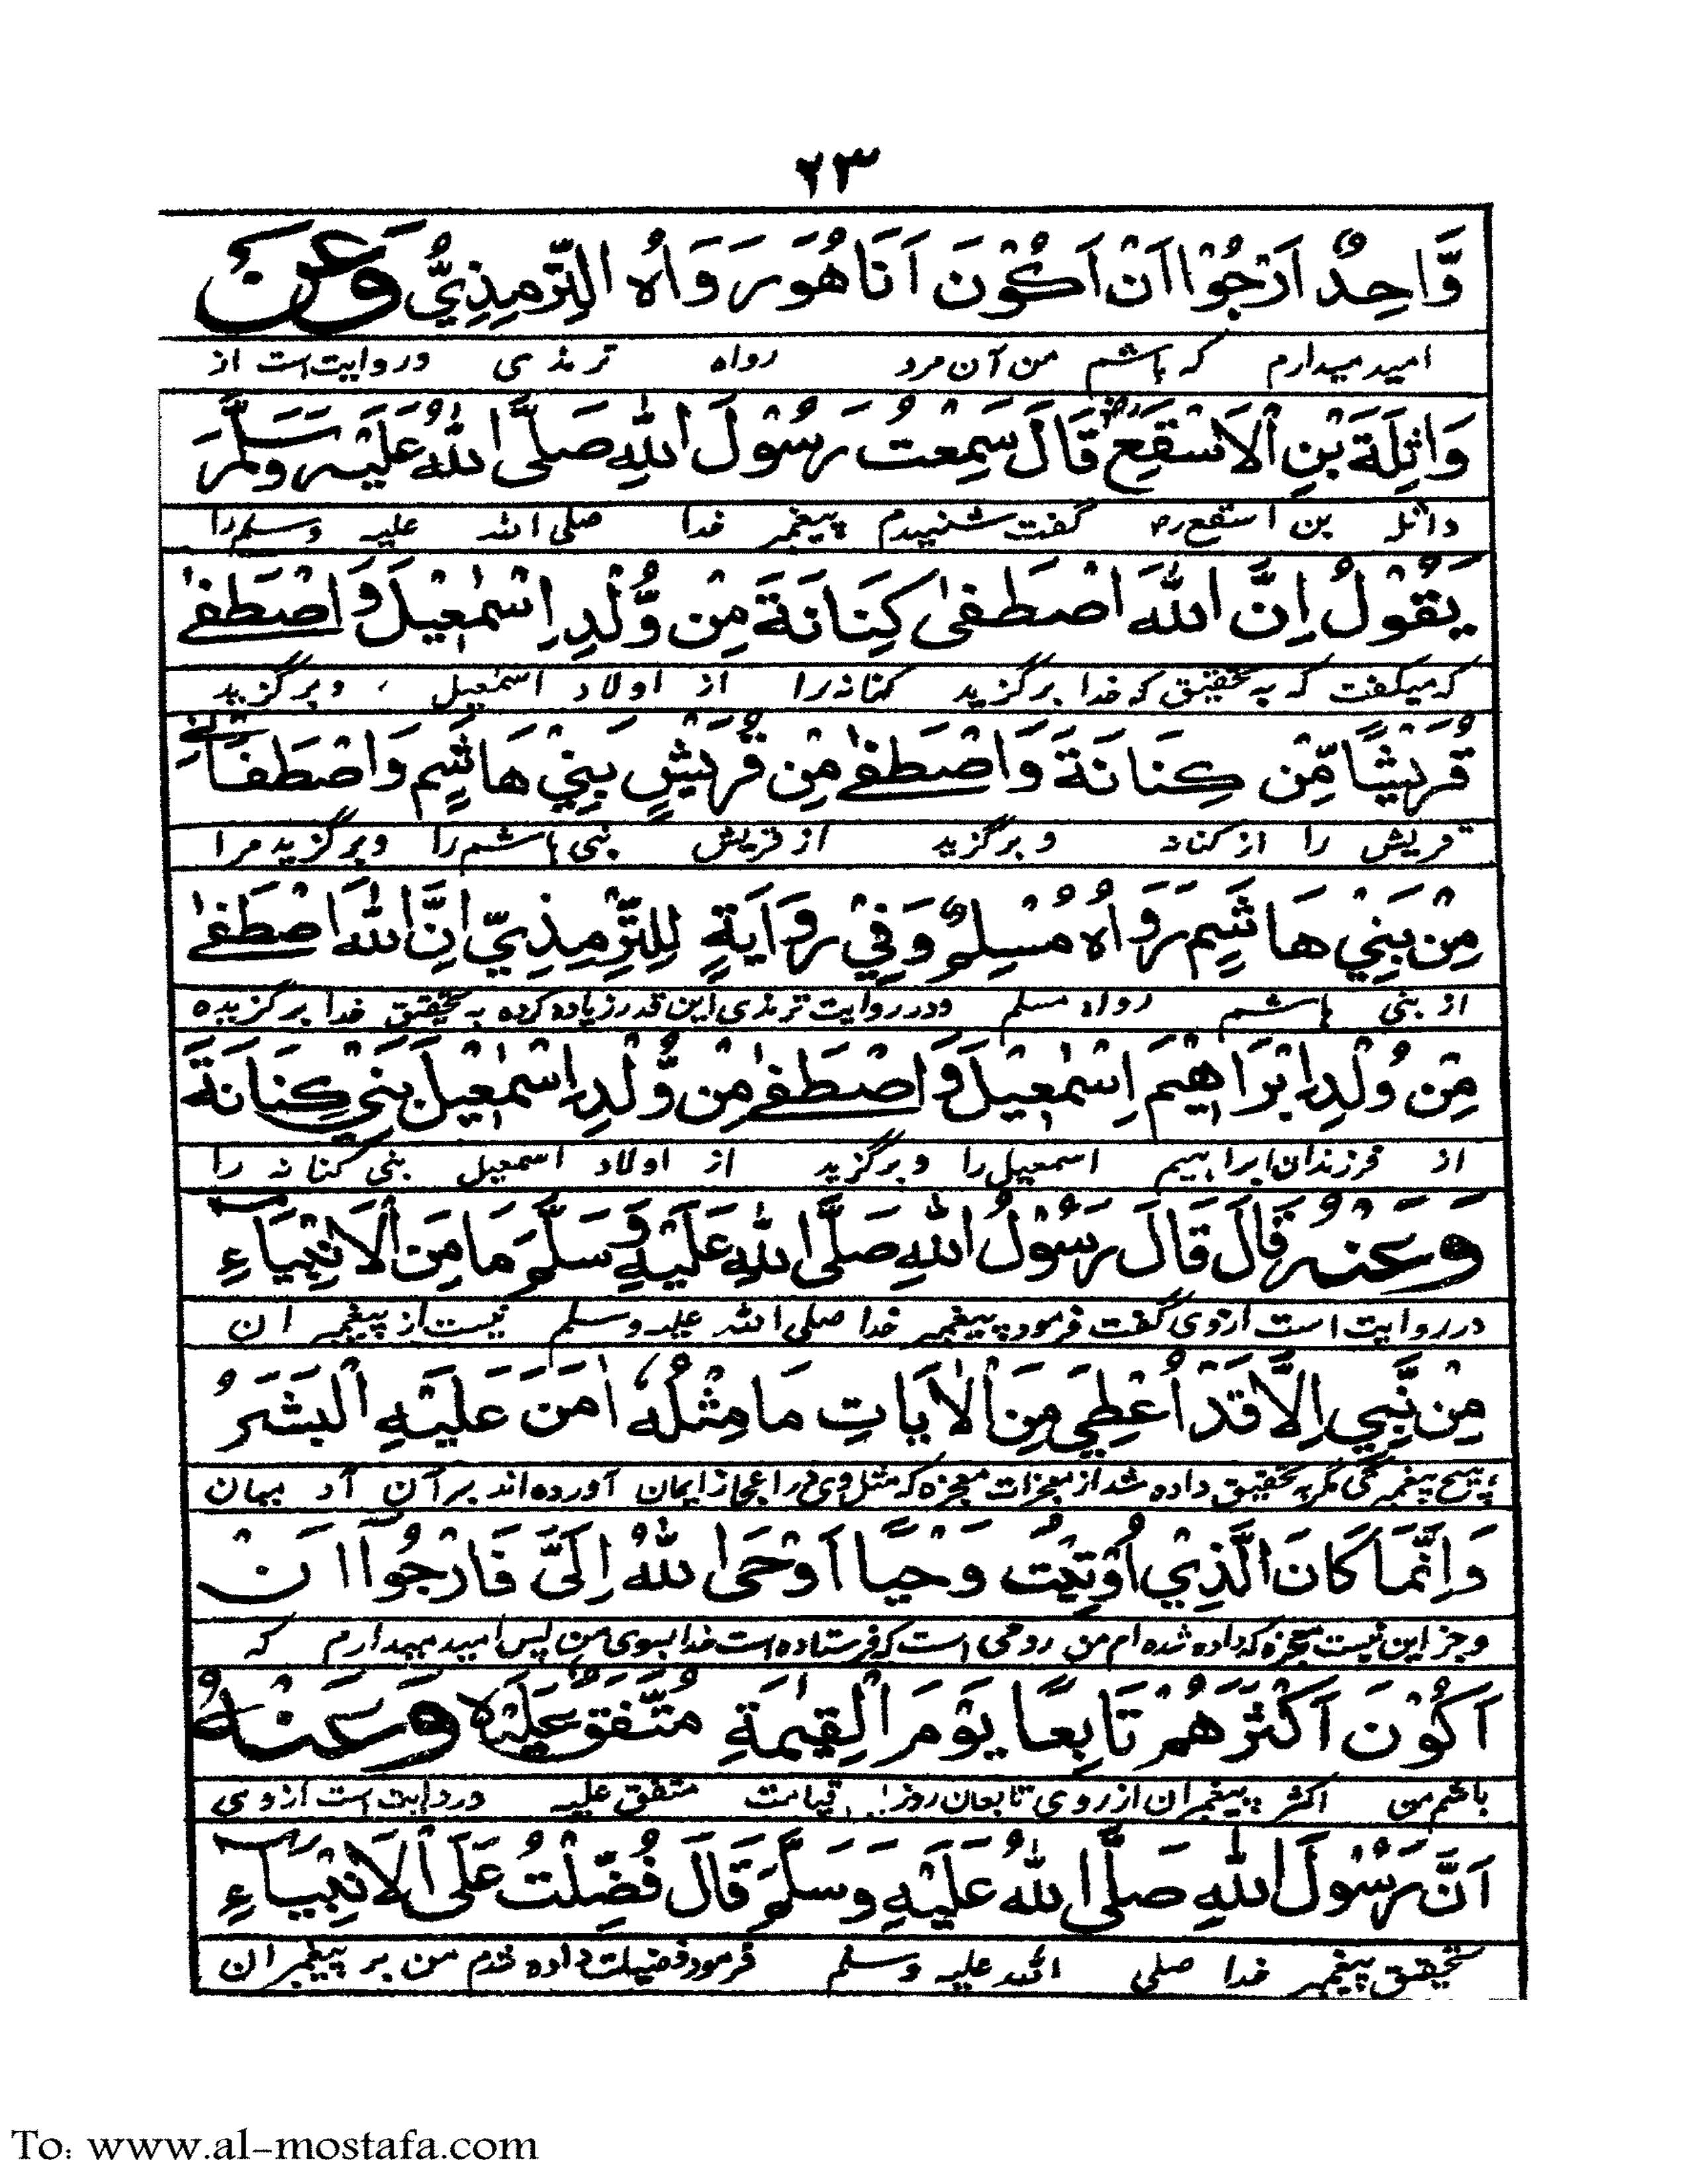 ٢٣
وَّاحِدٌ اَرْجُوْا اَنْ اَكُوْنَ اَنَا هُوَ رَوَاهُ التِّرْمِذِيُّ وَعَنْ
امید میدارم که باشم من آن مرد رواه ترمذی و روایت است از
وَاثِلَةَ بْنِ الْاَسْقَعِ رض قَالَ سَمِعْتُ رَسُوْلَ اللهِ صَلَّى اللهُ عَلَيْهِ وَسَلَّمَ
واثله بن استقع رض گفت شنیدم پیغمبر خدا صلی الله علیه وسلم را
يَقُوْلُ اِنَّ اللهَ اصْطَفٰى كِنَانَةَ مِنْ وُّلْدِ اِسْمٰعِيْلَ وَاصْطَفٰى
که میگفت که به تحقیق که خدا برگزید کنانه را از اولاد اسمٰعیل ، و برگزید
قُرَيْشًا مِّنْ كِنَانَةَ وَاصْطَفٰى مِنْ قُرَيْشٍ بَنِيْ هَاشِمٍ وَاصْطَفَانِيْ
قریش را از کنانه و برگزید از قریش بنی هاشم را و برگزید مرا
مِنْ بَنِيْ هَاشِمٍ رَوَاهُ مُسْلِمٌ وَفِيْ رِوَايَةٍ لِلتِّرْمِذِيِّ اِنَّ اللهَ اصْطَفٰى
از بنی هاشم رواه مسلم و در روایت ترمذی این قدر زیاده کرده به تحقیق خدا برگزیده
مِنْ وُلْدِ اِبْرَاهِيْمَ اِسْمٰعِيْلَ وَاصْطَفٰى مِنْ وُّلْدِ اِسْمٰعِيْلَ بَنِيْ كِنَانَةَ
از فرزندان ابراهیم اسمعیل را و برگزید از اولاد اسمعیل بنی کنانه را
وَعَنْهُ قَالَ قَالَ رَسُوْلُ اللهِ صَلَّى اللهُ عَلَيْهِ وَسَلَّمَ مَا مِنَ الْاَنْبِيَاءِ
در روایت است ازوی گفت فرمود پیغمبر خدا صلی الله علیه وسلم نیست از پیغمبر ان
مِنْ نَّبِيٍّ اِلَّا قَدْ اُعْطِيَ مِنَ الْاٰيَاتِ مَا مِثْلُهٗ اٰمَنَ عَلَيْهِ الْبَشَرُ
هیچ پیغمبری مگر به تحقیق داده شد از معجزات معجزه که مثل وی در اعجاز ایمان آورده اند بر آن آد
وَاِنَّمَا كَانَ الَّذِيْ اُوْتِيْتُ وَحْيًا اَوْحَى اللهُ اِلَيَّ فَاَرْجُوْا اَنْ
و جز این نیست معجزه که داده شده ام من وحی است که فرستاده است خدا بسوی من پس امید میدارم که
اَكُوْنَ اَكْثَرَهُمْ تَابِعًا يَوْمَ الْقِيٰمَةِ مُتَّفَقٌ عَلَيْهِ وَعَنْهُ
باشم من اکثر پیغمبران از روی تابعان روز قیامت متفق علیه و روایت است ازوی
اَنَّ رَسُوْلَ اللهِ صَلَّى اللهُ عَلَيْهِ وَسَلَّمَ قَالَ فُضِّلْتُ عَلَى الْاَنْبِيَاءِ
تحقیق پیغمبر خدا صلی الله علیه وسلم فرمود فضیلت داده شدم من بر پیغمبر ان
To: www.al-mostafa.com